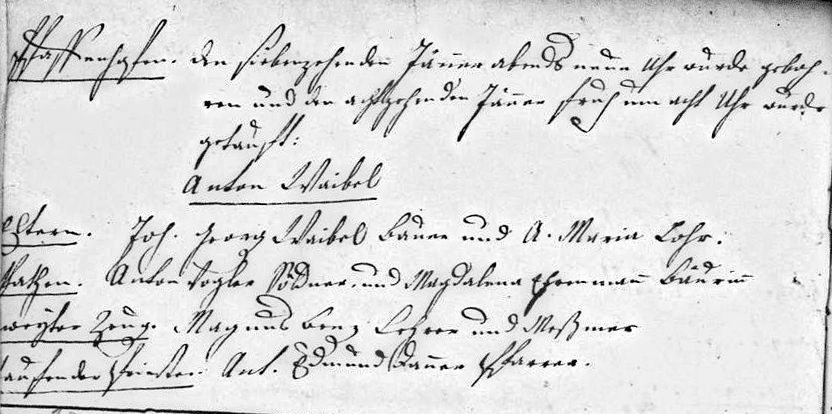 Pfaffenhofen. Den siebenzehenden Jänner abends neun Uhr wurde geboh-
ren und den achtzehenden Jänner früh um acht Uhr wurde
getauft:
Anton Waibel
Eltern. Joh. Georg Waibel Bauer und A. Maria Lohr.
Pathen. Anton Vogler Söldner, und Magdalena Ehrenmann Bäurin
zweyter Zeug. Magnus Benz Lehrer und Meßmer
taufender Priester Ant. Edmund Danner Pfarrer.